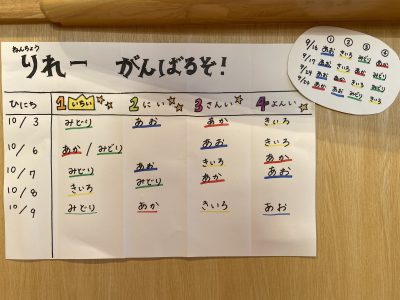 ねんちょう
りれー がんばるぞ!
ひにち 1いちい 2にい 3さんい 4よんい
10/3 みどり あお あか きいろ
10/6 あか/みどり あお きいろ
10/7 みどり あお きいろ あか
10/8 きいろ みどり あか あお
10/9 みどり あか きいろ あお
① ② ③ ④
9/16 あお きいろ みどり あか
9/17
あか あお みどり きいろ